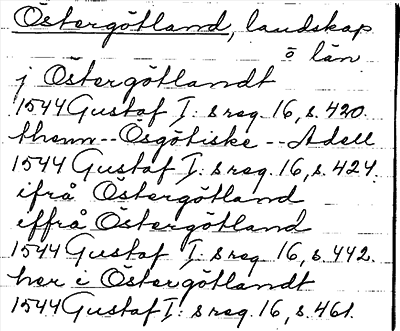 Östergötland, landskap
o län
j Östergötlandt
1544 Gustaf I: s reg. 16, s. 420.
thenn -- Osgötiske -- Adell
1544 Gustaf I: s reg. 16, s. 424.
ifrå Östergötland
effrå Östergötland
1544 Gustaf I: s reg. 16, s. 442.
her i Östergötlandt
1544 Gustaf I: s reg. 16, s. 461.